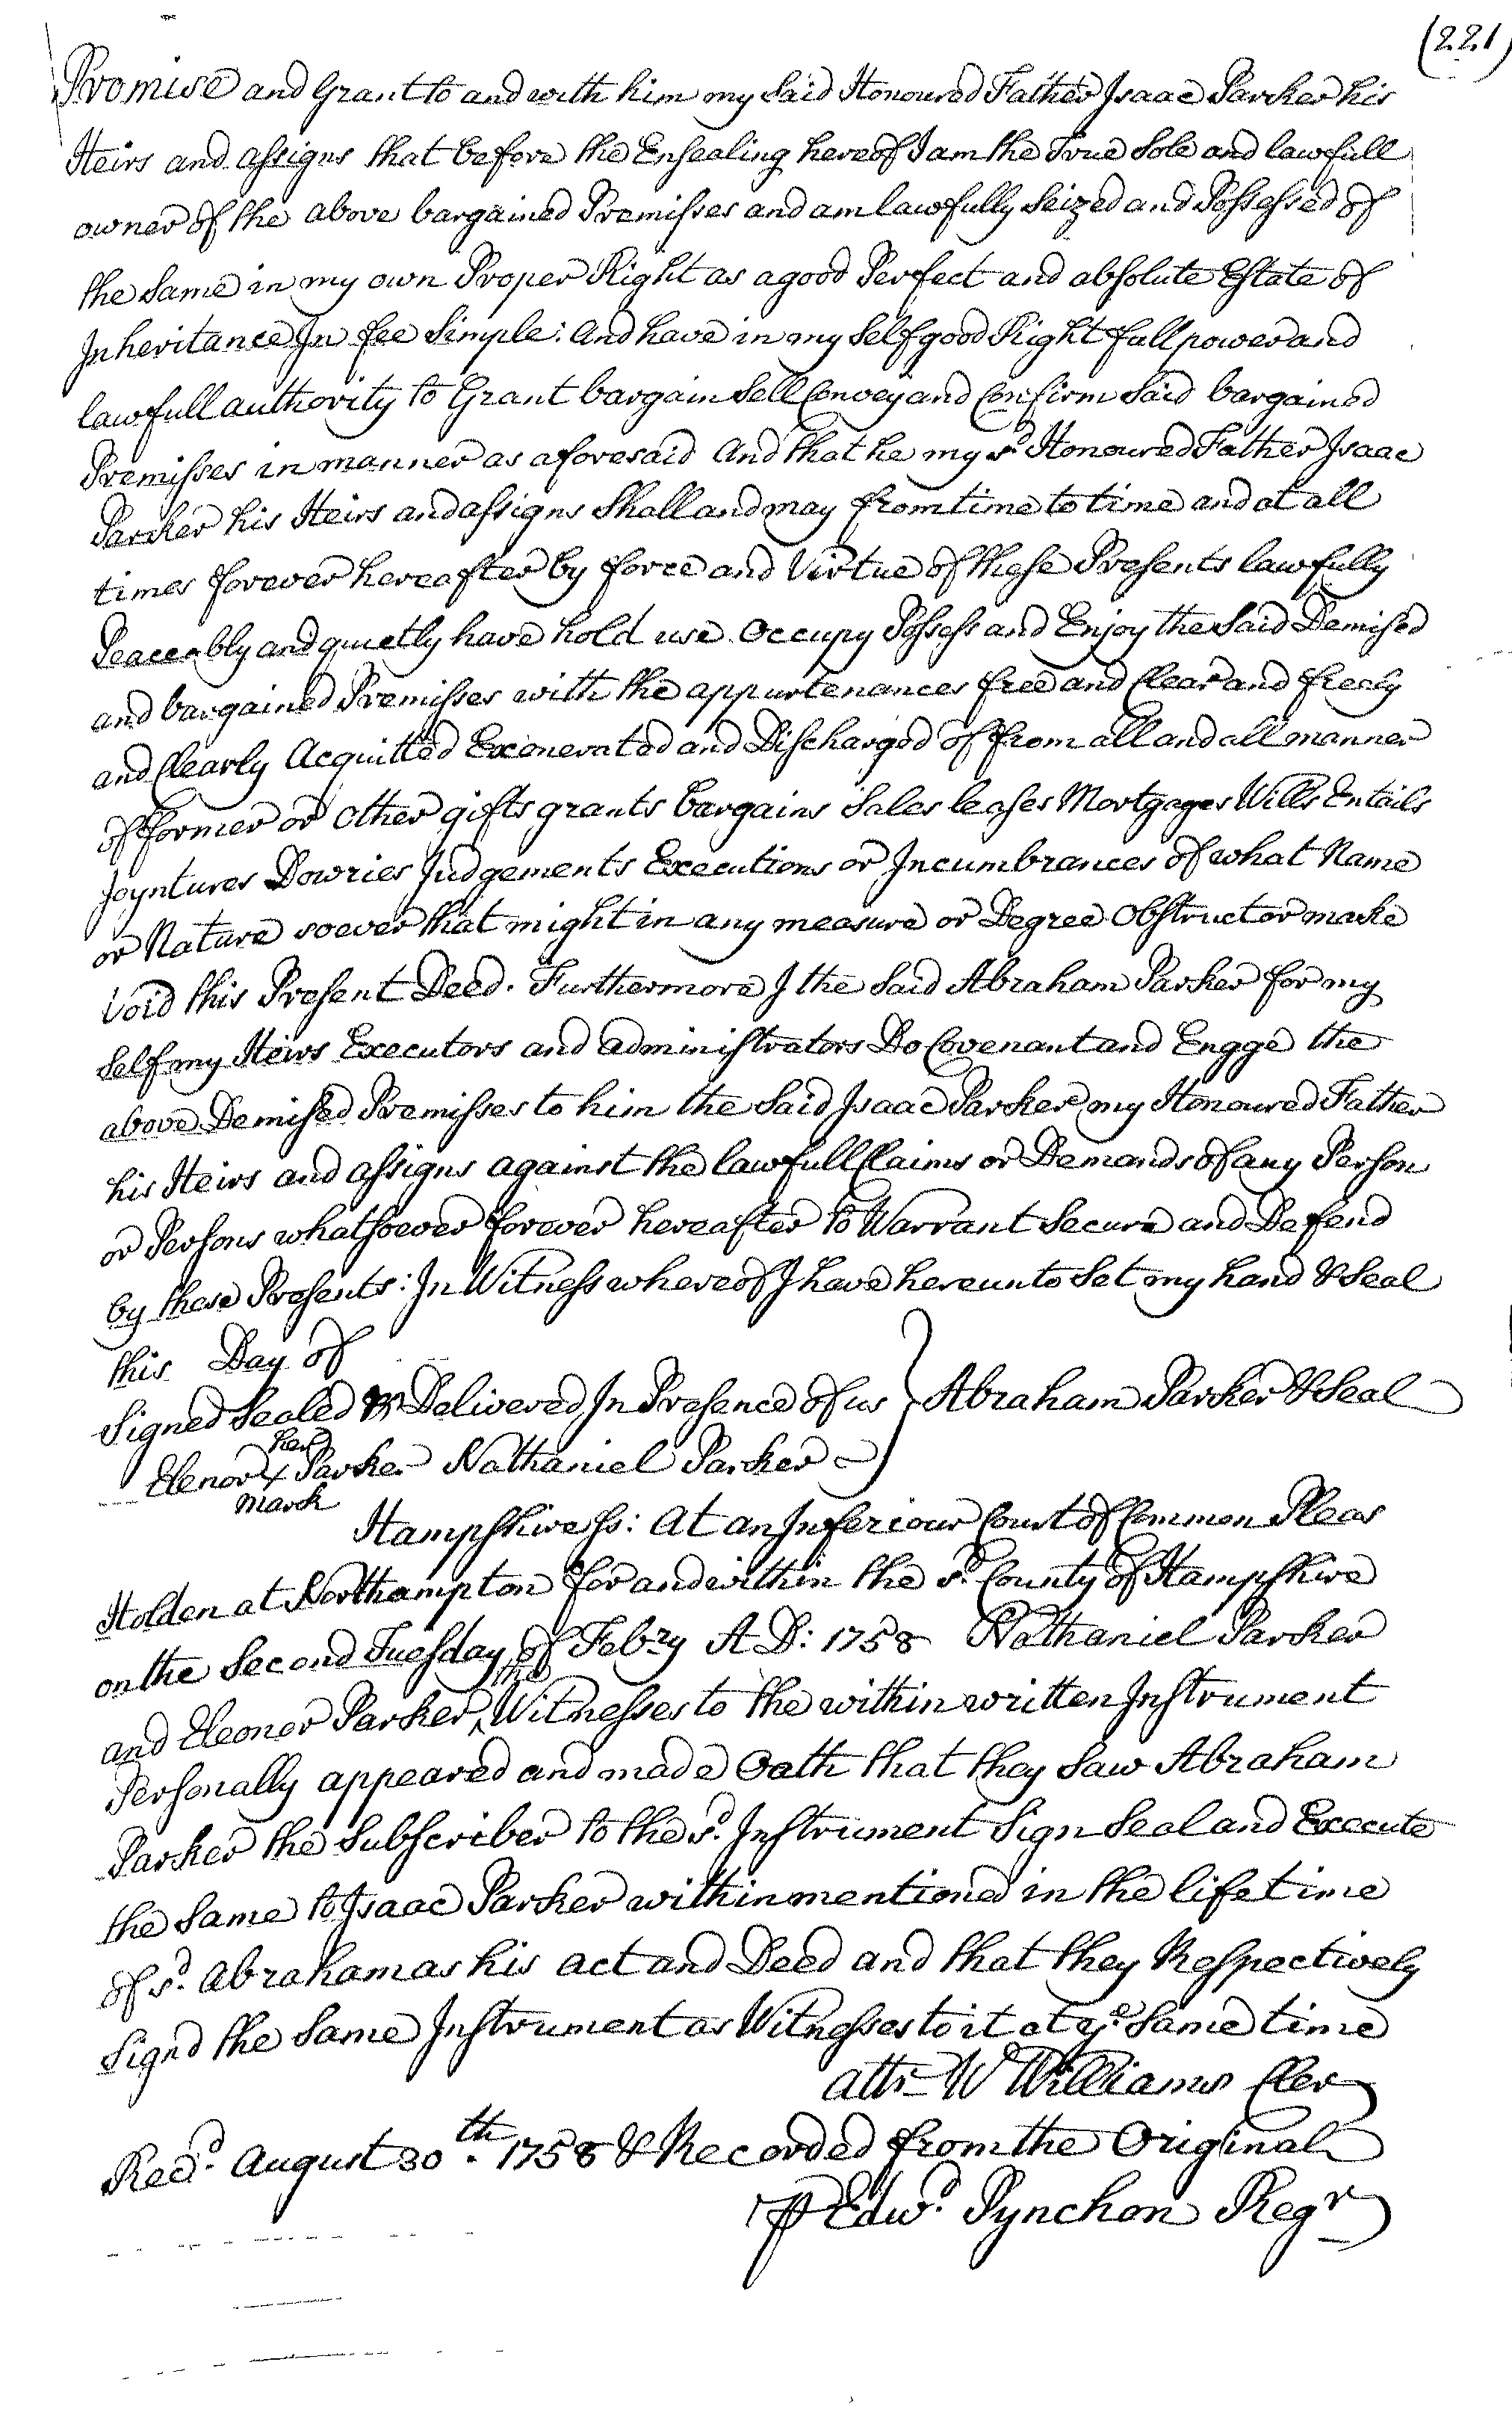 (221)
Promise and Grant to and with him my Said Honoured Father Isaac Parker his
Heirs and assigns that before the Ensealing hereof I am the True Sole and lawfull
owner of the above bargained Premisses and am lawfully Seized and Possessed of
the Same in my own Proper Right as a good Perfect and absolute Estate of
Inheritance In fee Simple: And have in my Self good Right full power and
lawfull authority to Grant bargain Sell Convey and Confirm Said bargained
Premisses in manner as aforesaid And that he my sd. Honoured Father Isaac
Parker his Heirs and assigns Shall and may from time to time and at all
times forever hereafter by force and Virtue of these Presents lawfully
Peaceably and quietly have hold use Occupy Possess and Enjoy the Said Demised
and bargained Premisses with the appurtenances free and Clear and freely
and Clearly Acquitted Exonerated and Discharged of from all and all manner
of former or other gifts grants bargains Sales leases Mortgages Wills Entails
Joyntures Dowries Judgements Executions or Incumbrances of what Name
or Nature soever that might in any measure or Degree Obstruct or make
Void this Present Deed. Furthermore I the Said Abraham Parker for my
Self my Heirs Executors and administrators Do Covenant and Engge the
above Demised Premisses to him the Said Isaac Parker my Honoured Father
his Heirs and assigns against the lawfull Claims or Demands of any Person
or Persons whatsoever forever hereafter to Warrant Secure and Defend
by these Presents: In Witness whereof I have hereunto Set my hand & Seal
this Day of
Signed Sealed & Delivered In Presence of us } Abraham Parker & Seal
her
Elenor + Parker Nathaniel Parker
mark
Hampshire ss: At an Inferiour Court of Common Pleas
Holden at Northampton for and within the sd. County of Hampshire
on the Second Tuesday of Febry A D: 1758 Nathaniel Parker
and Eleoner Parker ^the Witnesses to the within written Instrument
Personally appeared and made Oath that they Saw Abraham
Parker the Subscriber to the sd. Instrument Sign Seal and Execute
the Same to Isaac Parker within mentioned in the life time
of sd. Abraham as his act and Deed and that they Respectively
Signd the Same Instrument as Witnesses to it at ye. Same time
attr W Williams Cler
Recd. August 30th. 1758 & Recorded from the Original
P Edwd. Pynchon Regr